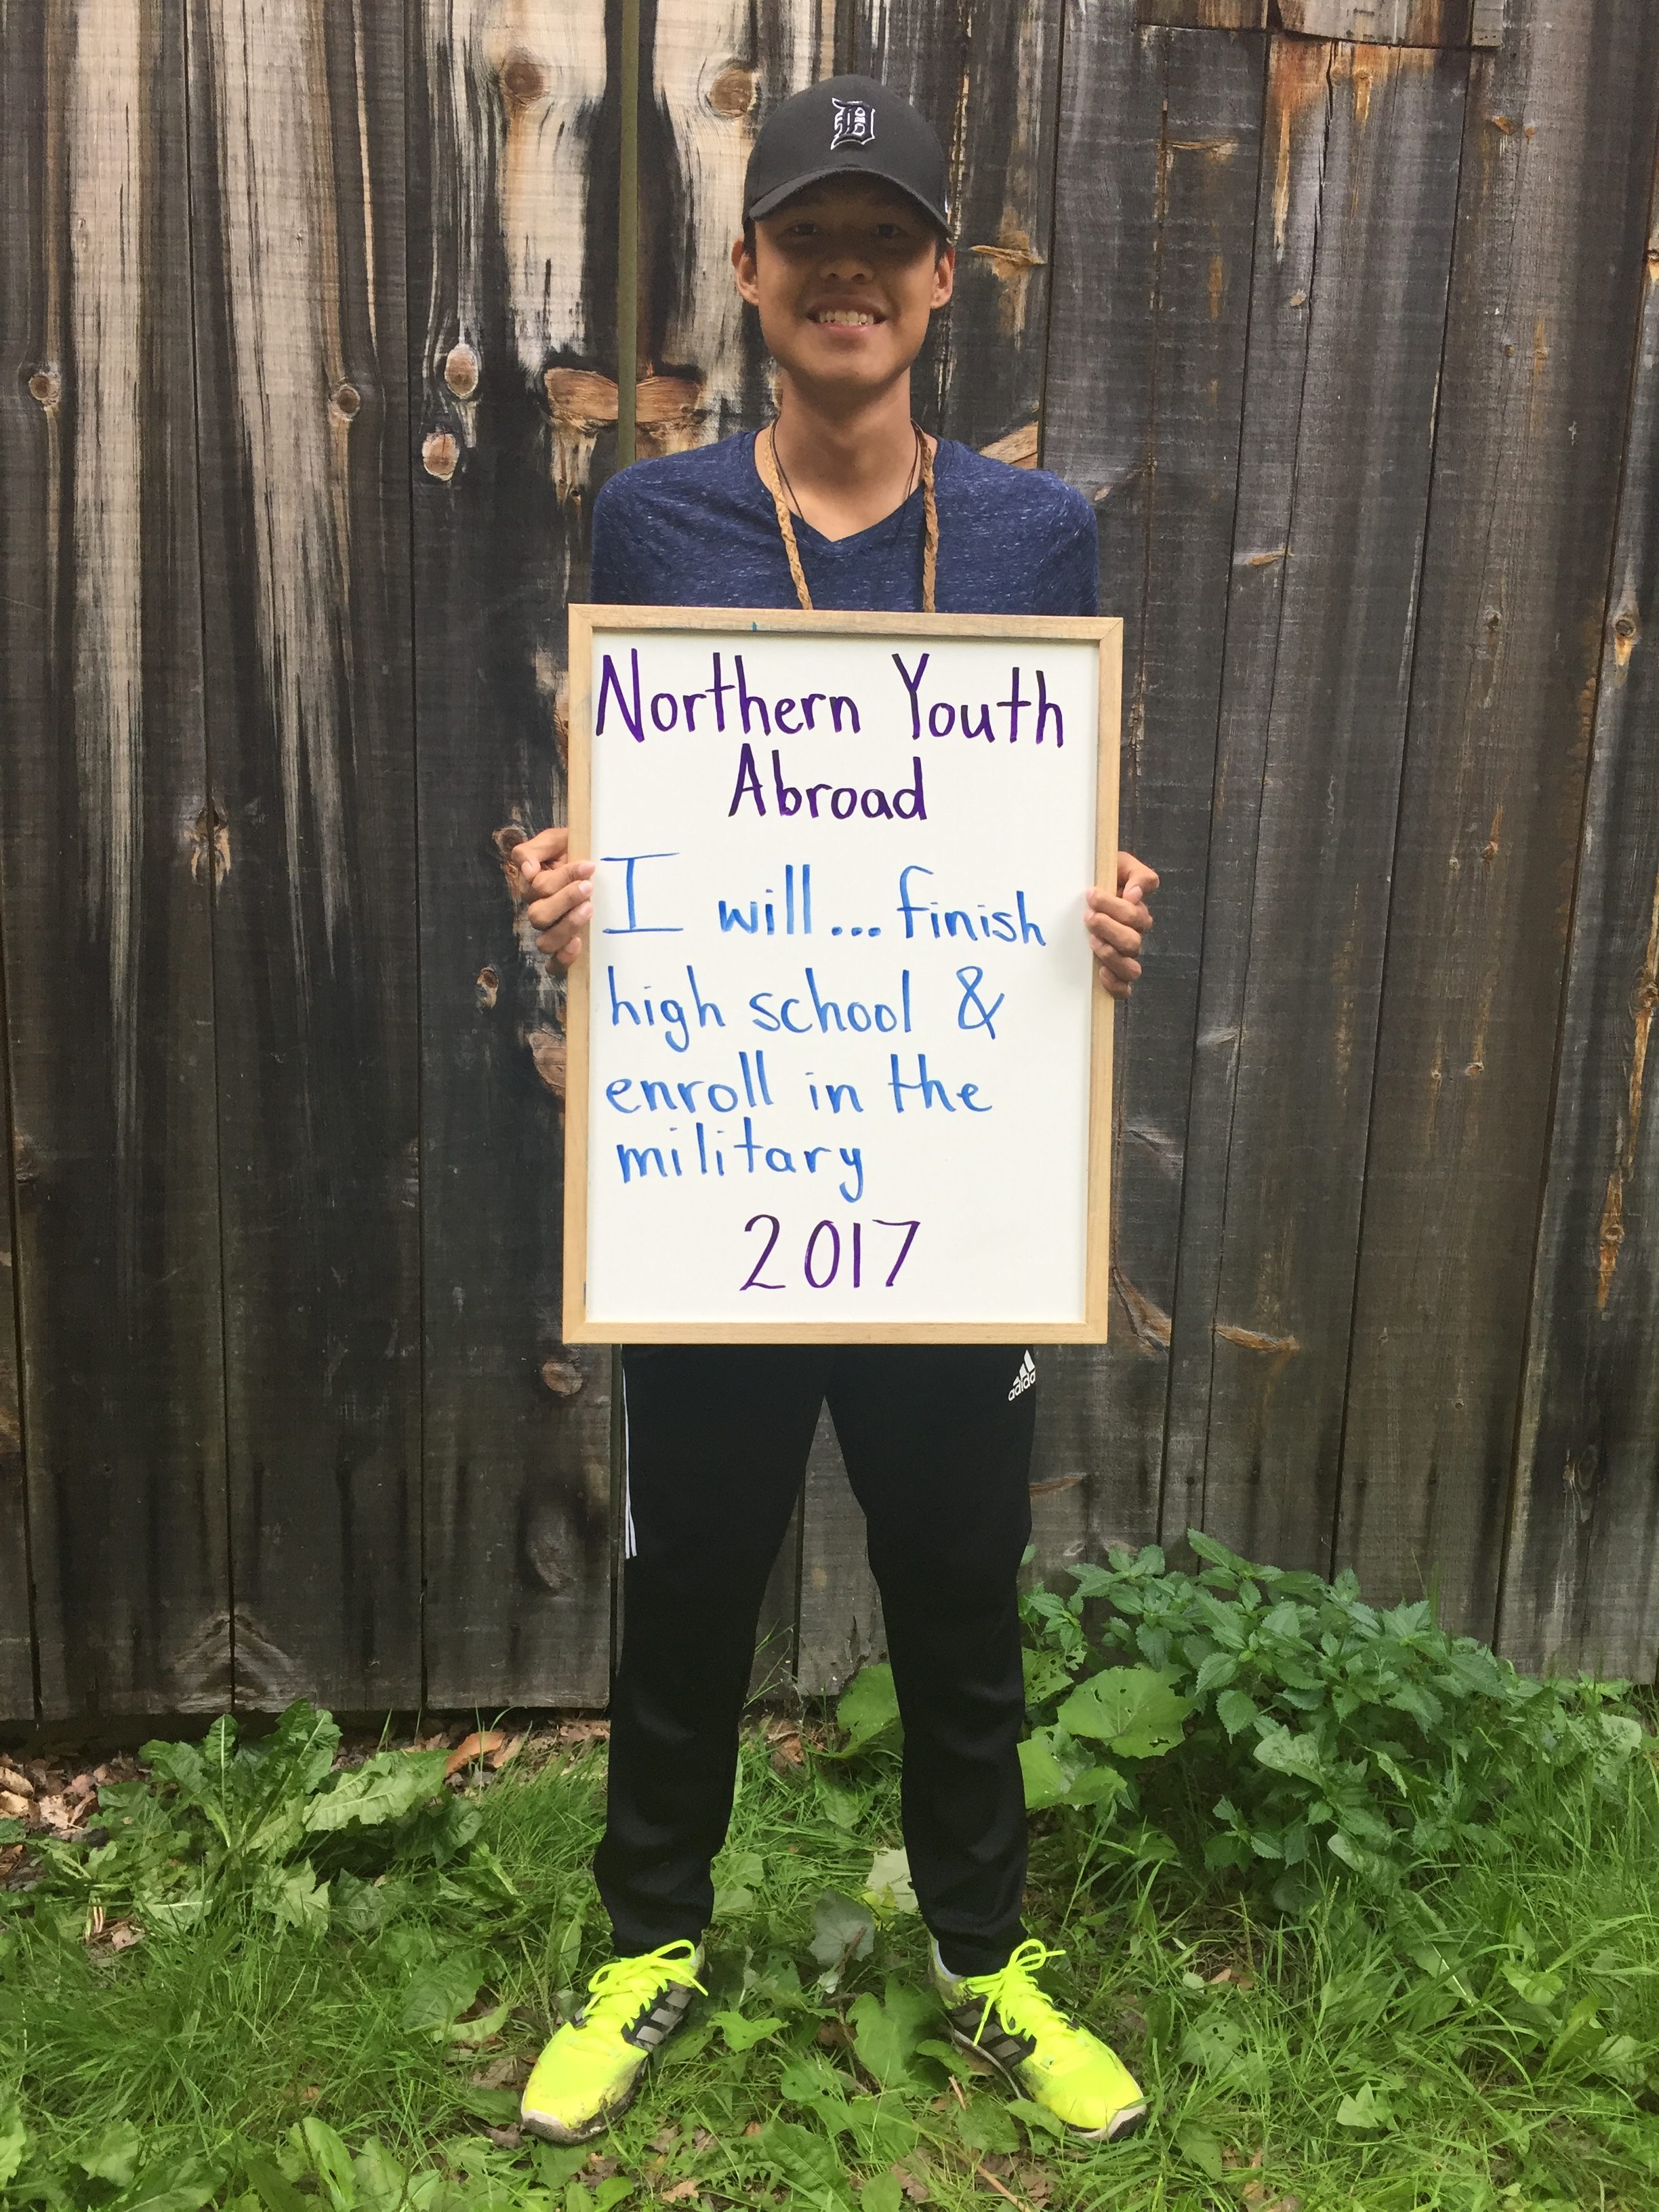 D
Northern Youth
Abroad
I will... finish
high school &
enroll in the
military
2017
adidas